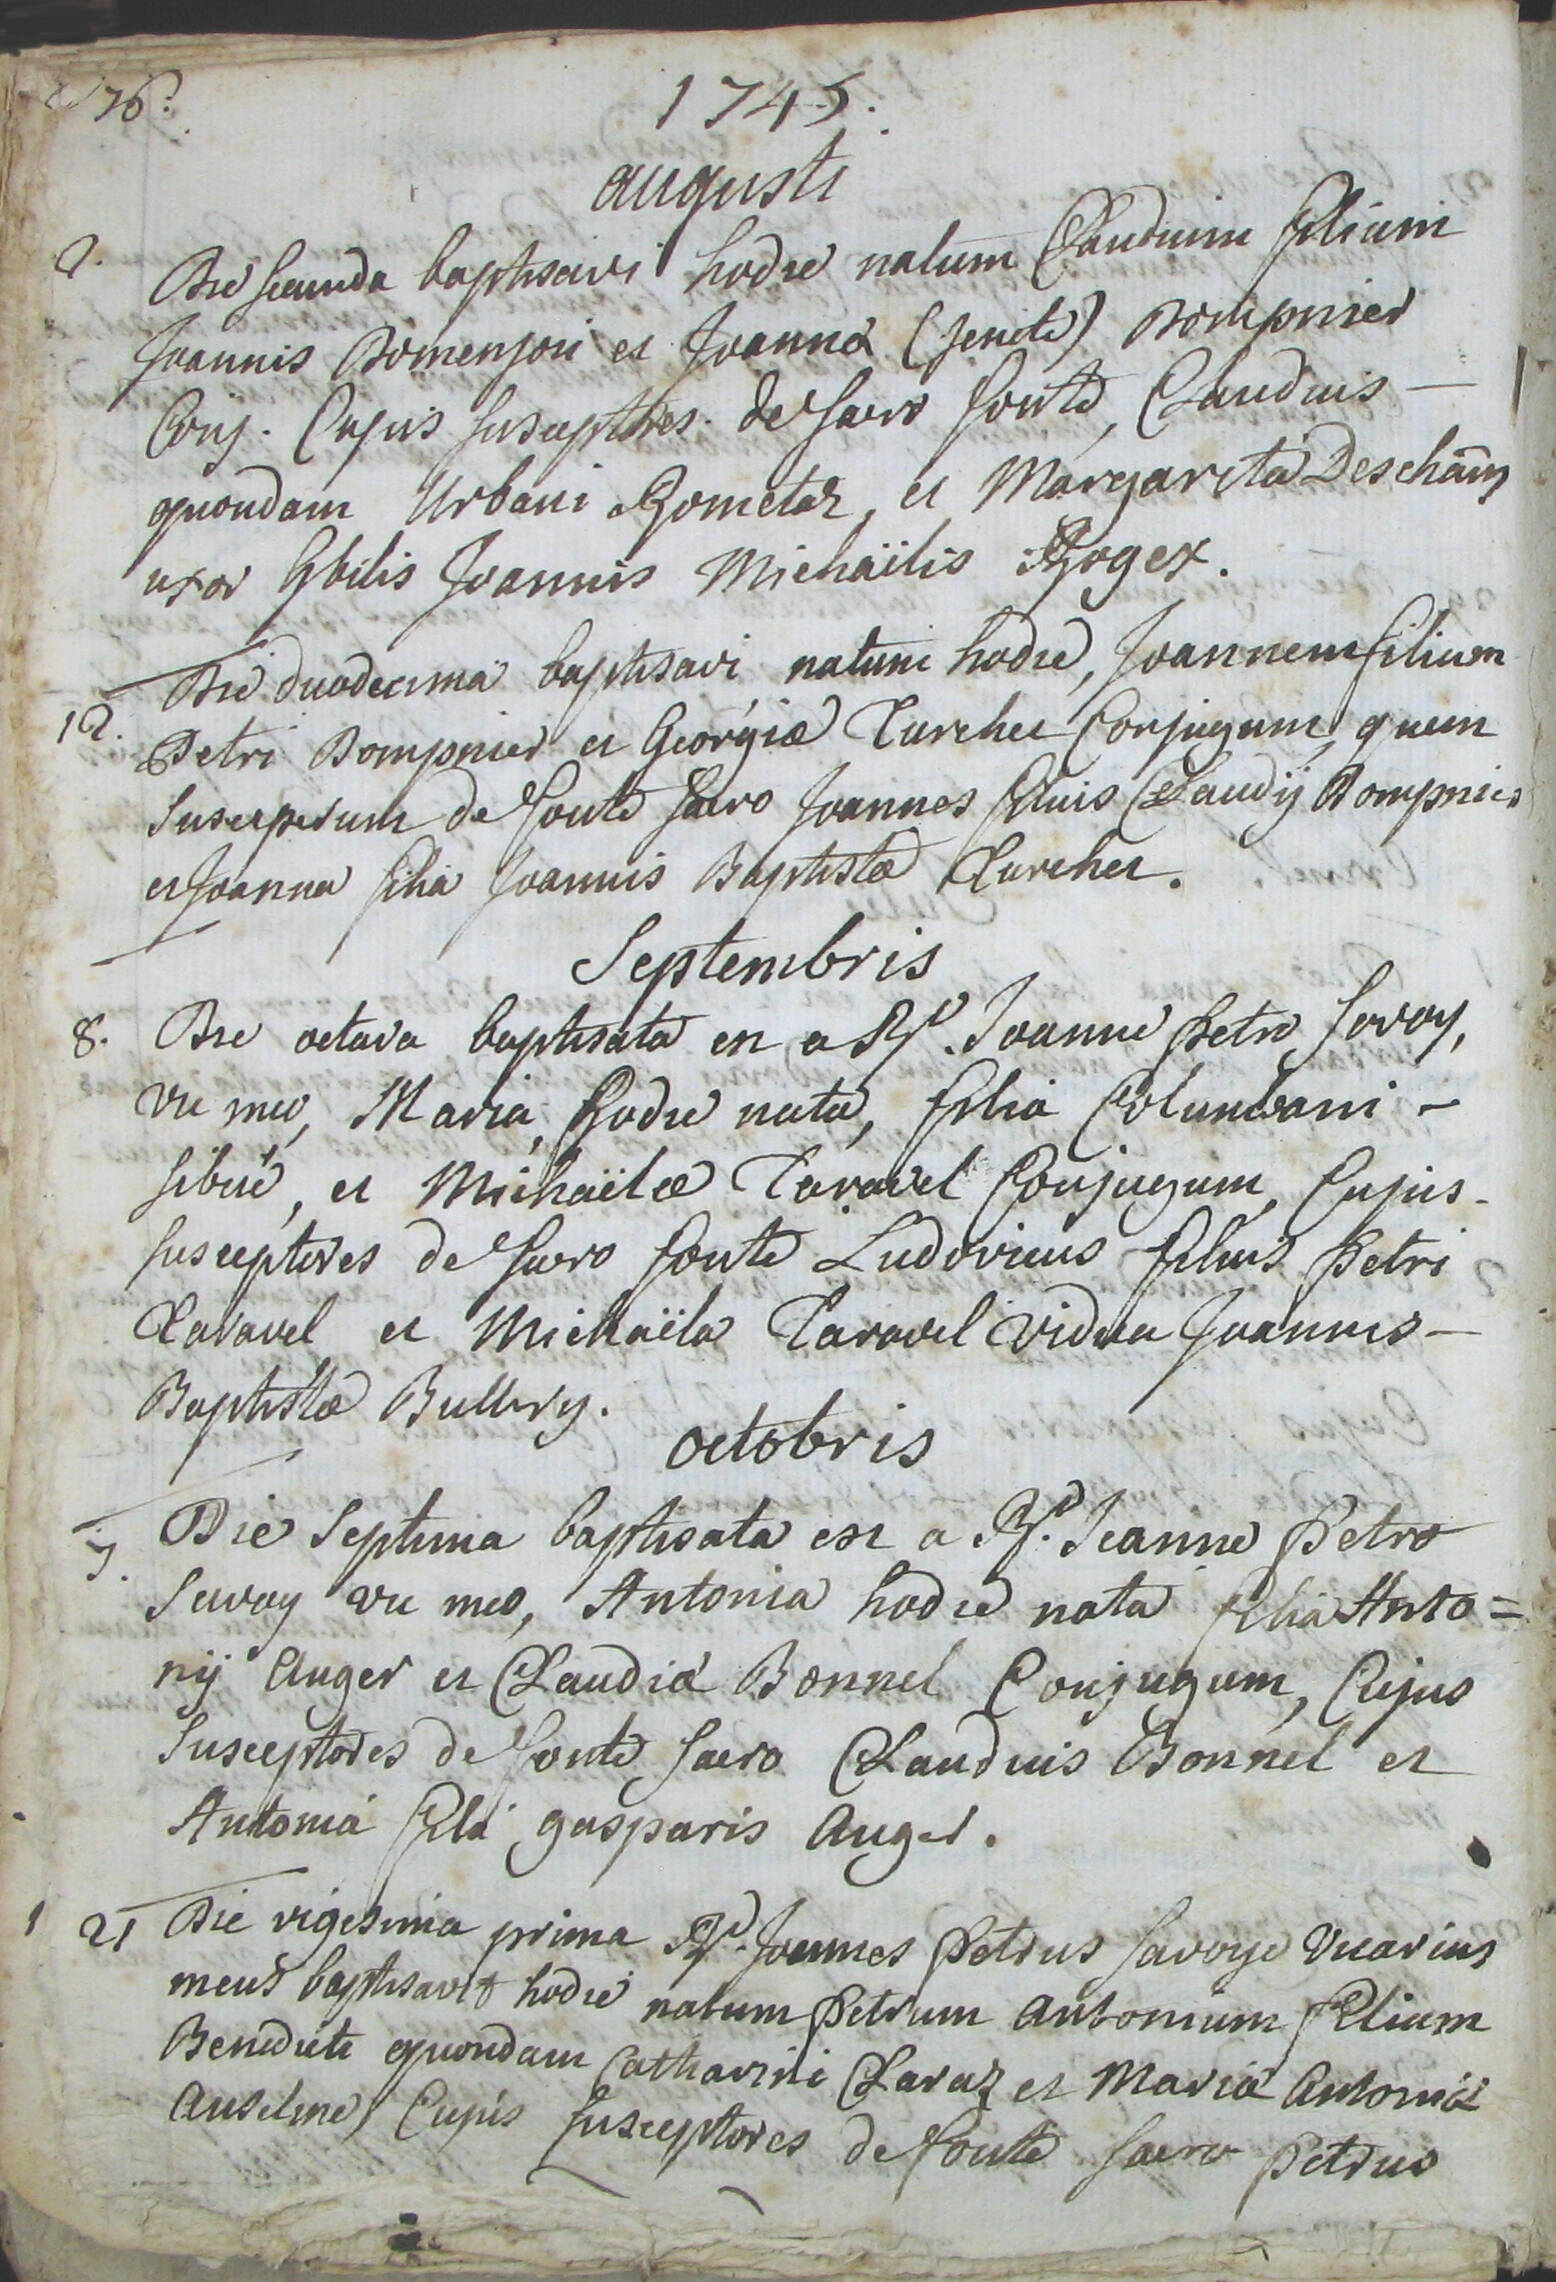 76.
1745.
augusti
2. Die secunda baptisavi hodie natum Claudium filium
Joannis Bomenjon et Joannæ (jenete) Bompnier
Conj. Cujus susceptores de sacro fonte, Claudius —
quondam Urbani Gometaz, et Margarita Deschamps
uxor Gbilis Joannis Michaïlis Gogex.
12. Die duodecima baptisavi natum hodie, Joannem filium
Petri Bompnier et Georgiæ Turchet Conjugum, quem
susceperunt de fonte sacro Joannes filius Claudij Bompnier
et Joanna filia Joannis Baptistæ Turchet.
Septembris
8. Die octava baptisata est a Rd. Joanne Petro Savoy,
vic meo, Maria, hodie nata, filia Columbani –
sibué, et Michaëlæ Taravel Conjugum, Cujus
susceptores de sacro fonte Ludovicus filius Petri
Taravel et Michaëla Taravel vidua Joannis –
Baptistæ Bullery.
octobris
7. Die Septima baptisata est a Rd. Joanne Petro
Savoy vic meo, Antonia hodie nata filia Anto=
nij Auger et Claudiæ Bonnel Conjugum, Cujus
Susceptores de fonte sacro Claudius Bonnel et
Antonia filia gasparis Auger.
21 Die vigesima prima Rd. Joannes Petrus Savoye Vicarius
meus baptisavit hodie natum Petrum Antonium filium
Benedicti quondam Catharini Claraz et Mariæ Antoniæ
Anselme, Cujus susceptores de fonte sacro Petrus